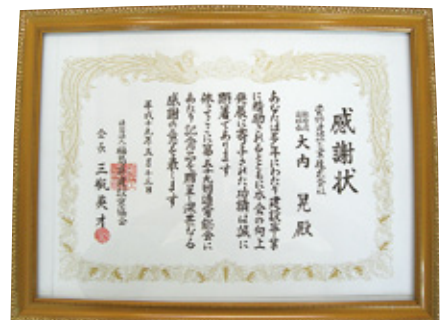 感謝状
大内 晃 殿
あなたは多年にわたり建設事業
に精励されるとともに本会の向上
発展に寄与された功績は誠に
顕著であります
よってここに第五十回通常総会に
あたり記念品を贈呈し深甚なる
感謝の意を表します
平成十九年五月
会長 三瓶英才